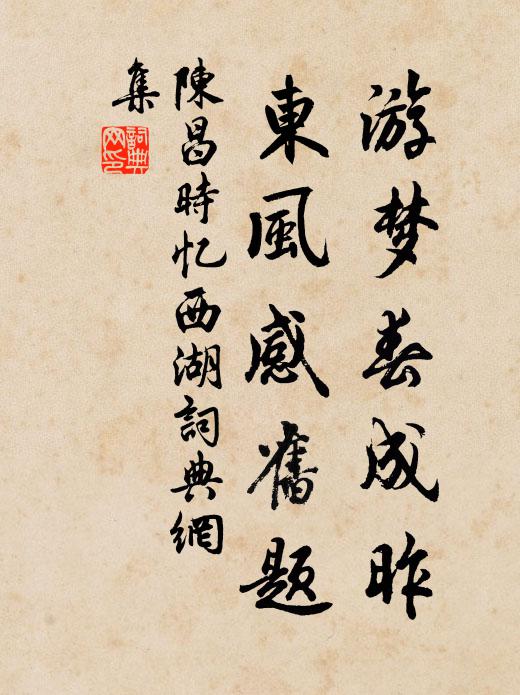 游梦春成昨
東風感舊題
陳昌時忆西湖詞典網
集
詞典网印